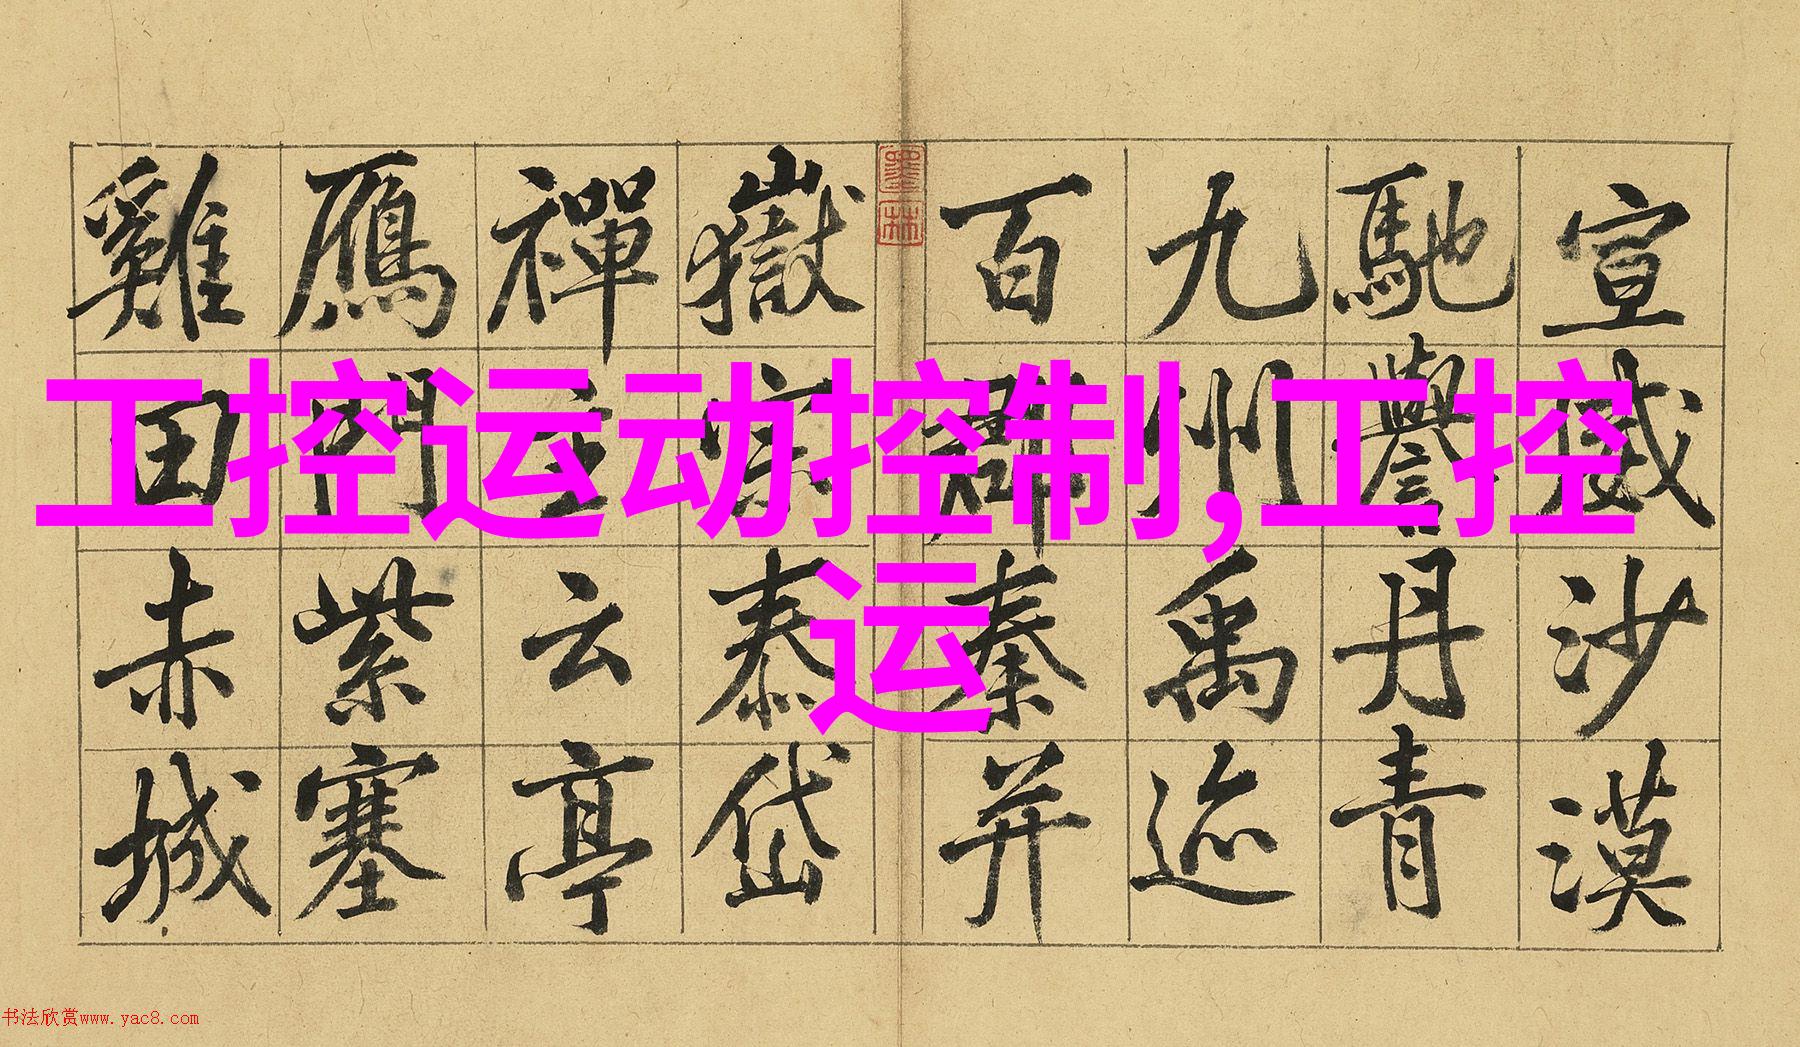 宣威沙漠
馳譽丹青
九州禹迹
百郡秦并
墨林
嶽宗泰岱
禪主云亭
鴈門紫塞
雞田赤城
工控运动控制,工控
运
书法欣赏www.yac8.com